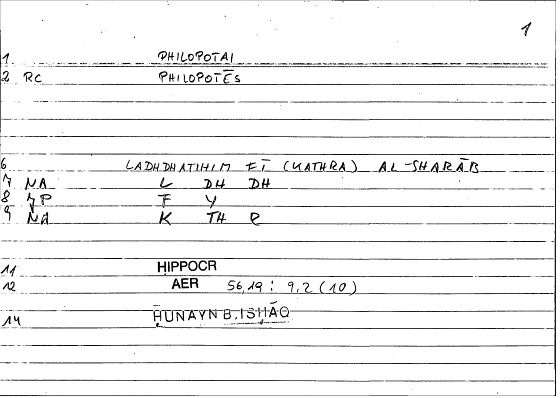 1
1 PHILOPOTAI
2 RC PHILOPOTĒS
6 LADHDHATIHIM FĪ (KATHRA) AL-SHARĀB
7 NA L DH DH
8 JP F Y
9 NA K TH R
11 HIPPOCR
12 AER 56,19 : 9,2 (10)
14 ḤUNAYN B. ISḤĀQ